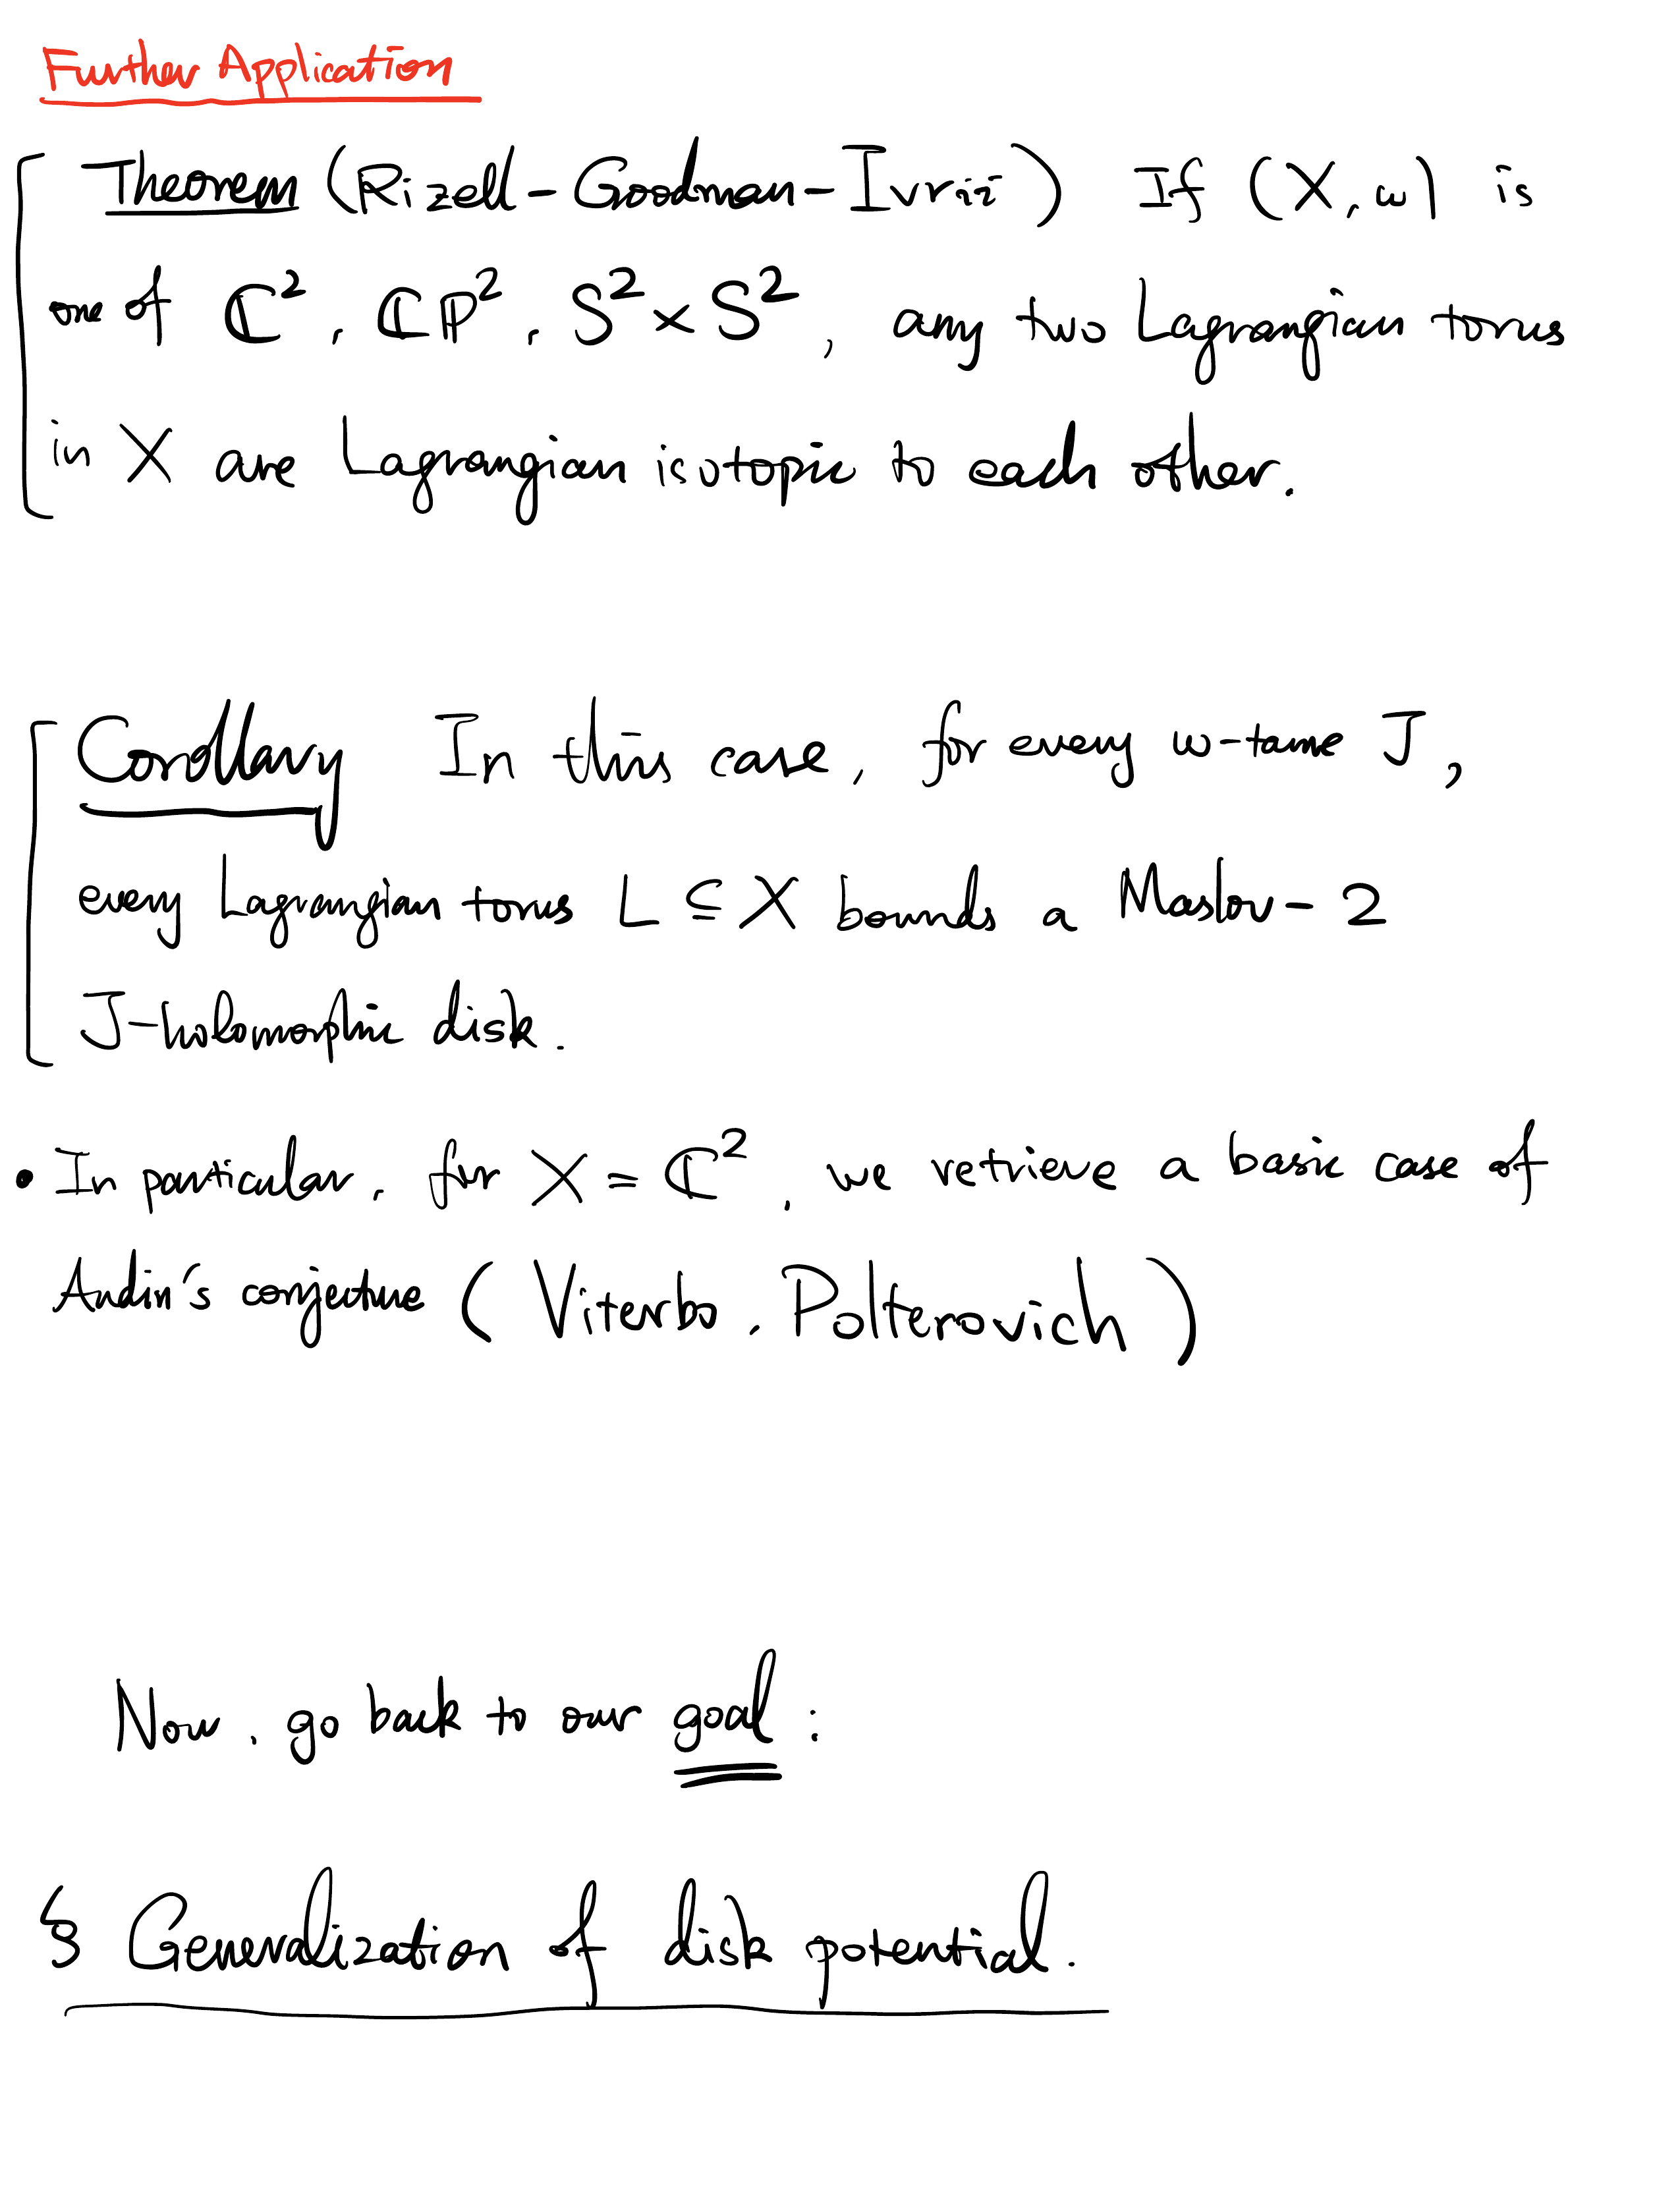 Further Application
Theorem (Rizell-Goodman-Ivrii) If (X, ω) is
one of ℂ², ℂP², S²×S², any two Lagrangian torus
in X are Lagrangian isotopic to each other.
Corollary In this case, for every ω-tame J,
every Lagrangian torus L ⊆ X bounds a Maslov-2
J-holomorphic disk.
• In particular, for X = ℂ², we retrieve a basic case of
Audin's conjecture (Viterbo, Polterovich)
Now, go back to our goal:
§ Generalization of disk potential.